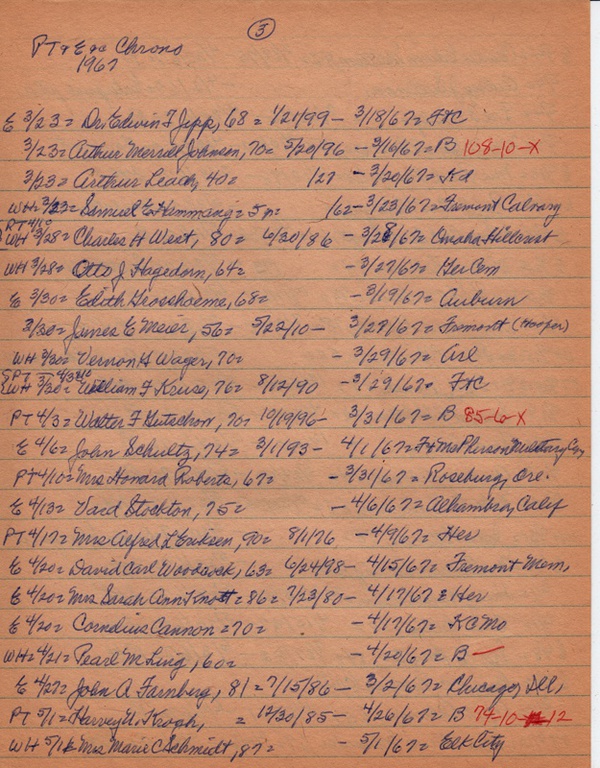 3
PT & E ge Chrons
1967
E 3/23 = Dr. Edwin F Jipp, 68 = 1/21/99 - 3/18/67 = FtC
3/23 = Arthur Merrill Johnson, 70 = 5/20/96 - 3/16/67 = B 108-10-X
3/23 = Arthur Leach, 40 = 1/27 - 3/20/67 =
WH 3/23 = Samuel E Hammang = 5 m = 1/62 - 3/23/67 = Fremont Calvary
PT 4/10
WH 3/28 = Charles H West, 80 = 6/30/86 - 3/28/67 = Omaha Hillcrest
WH 3/28 = Otto J. Hagedorn, 64 = - 3/27/67 = Ger Cem
E 3/30 = Edith Grosshoeme, 68 = - 3/19/67 = Auburn
3/30 = James E Meier, 56 = 5/22/10 - 3/28/67 = Fremont (Hooper)
WH 3/30 = Vernon H Wager, 70 = - 3/29/67 = Arl
PT 4/3
WH 3/30 = William F Kruse, 76 = 8/12/90 - 3/29/67 = FtC
PT 4/3 = Walter F Gutschow, 70 = 10/19/96 - 3/31/67 = B 85-6-X
E 4/6 = John Schultz, 74 = 3/1/93 - 4/1/67 = Ft McPherson Military Cem
PT 4/10 = Mrs Howard Roberts, 67 = - 3/31/67 = Roseburg, Ore.
E 4/13 = Vard Stockton, 75 = - 4/6/67 = Alhambra, Calif
PT 4/17 = Mrs Alfred L Eriksen, 90 = 8/1/76 - 4/9/67 = Her
E 4/20 = David Carl Woodcock, 63 = 6/24/98 - 4/15/67 = Fremont Mem,
E 4/20 = Mrs Sarah Ann Knott = 86 = 7/23/80 - 4/17/67 = Her
E 4/20 = Cornelius Cannon = 70 = - 4/17/67 = KC Mo
WH = 4/21 = Pearl M Ling, 60 = - 4/20/67 = B -
E 4/27 = John A Farnberg, 81 = 7/15/86 - 3/2/67 = Chicago, Ill,
PT 5/1 = Harvey N. Krogh, = 12/30/85 - 4/26/67 = B 74-10-12
WH 5/1 = Mrs Marie C Schmidt, 87 = - 5/1/67 = Elk City